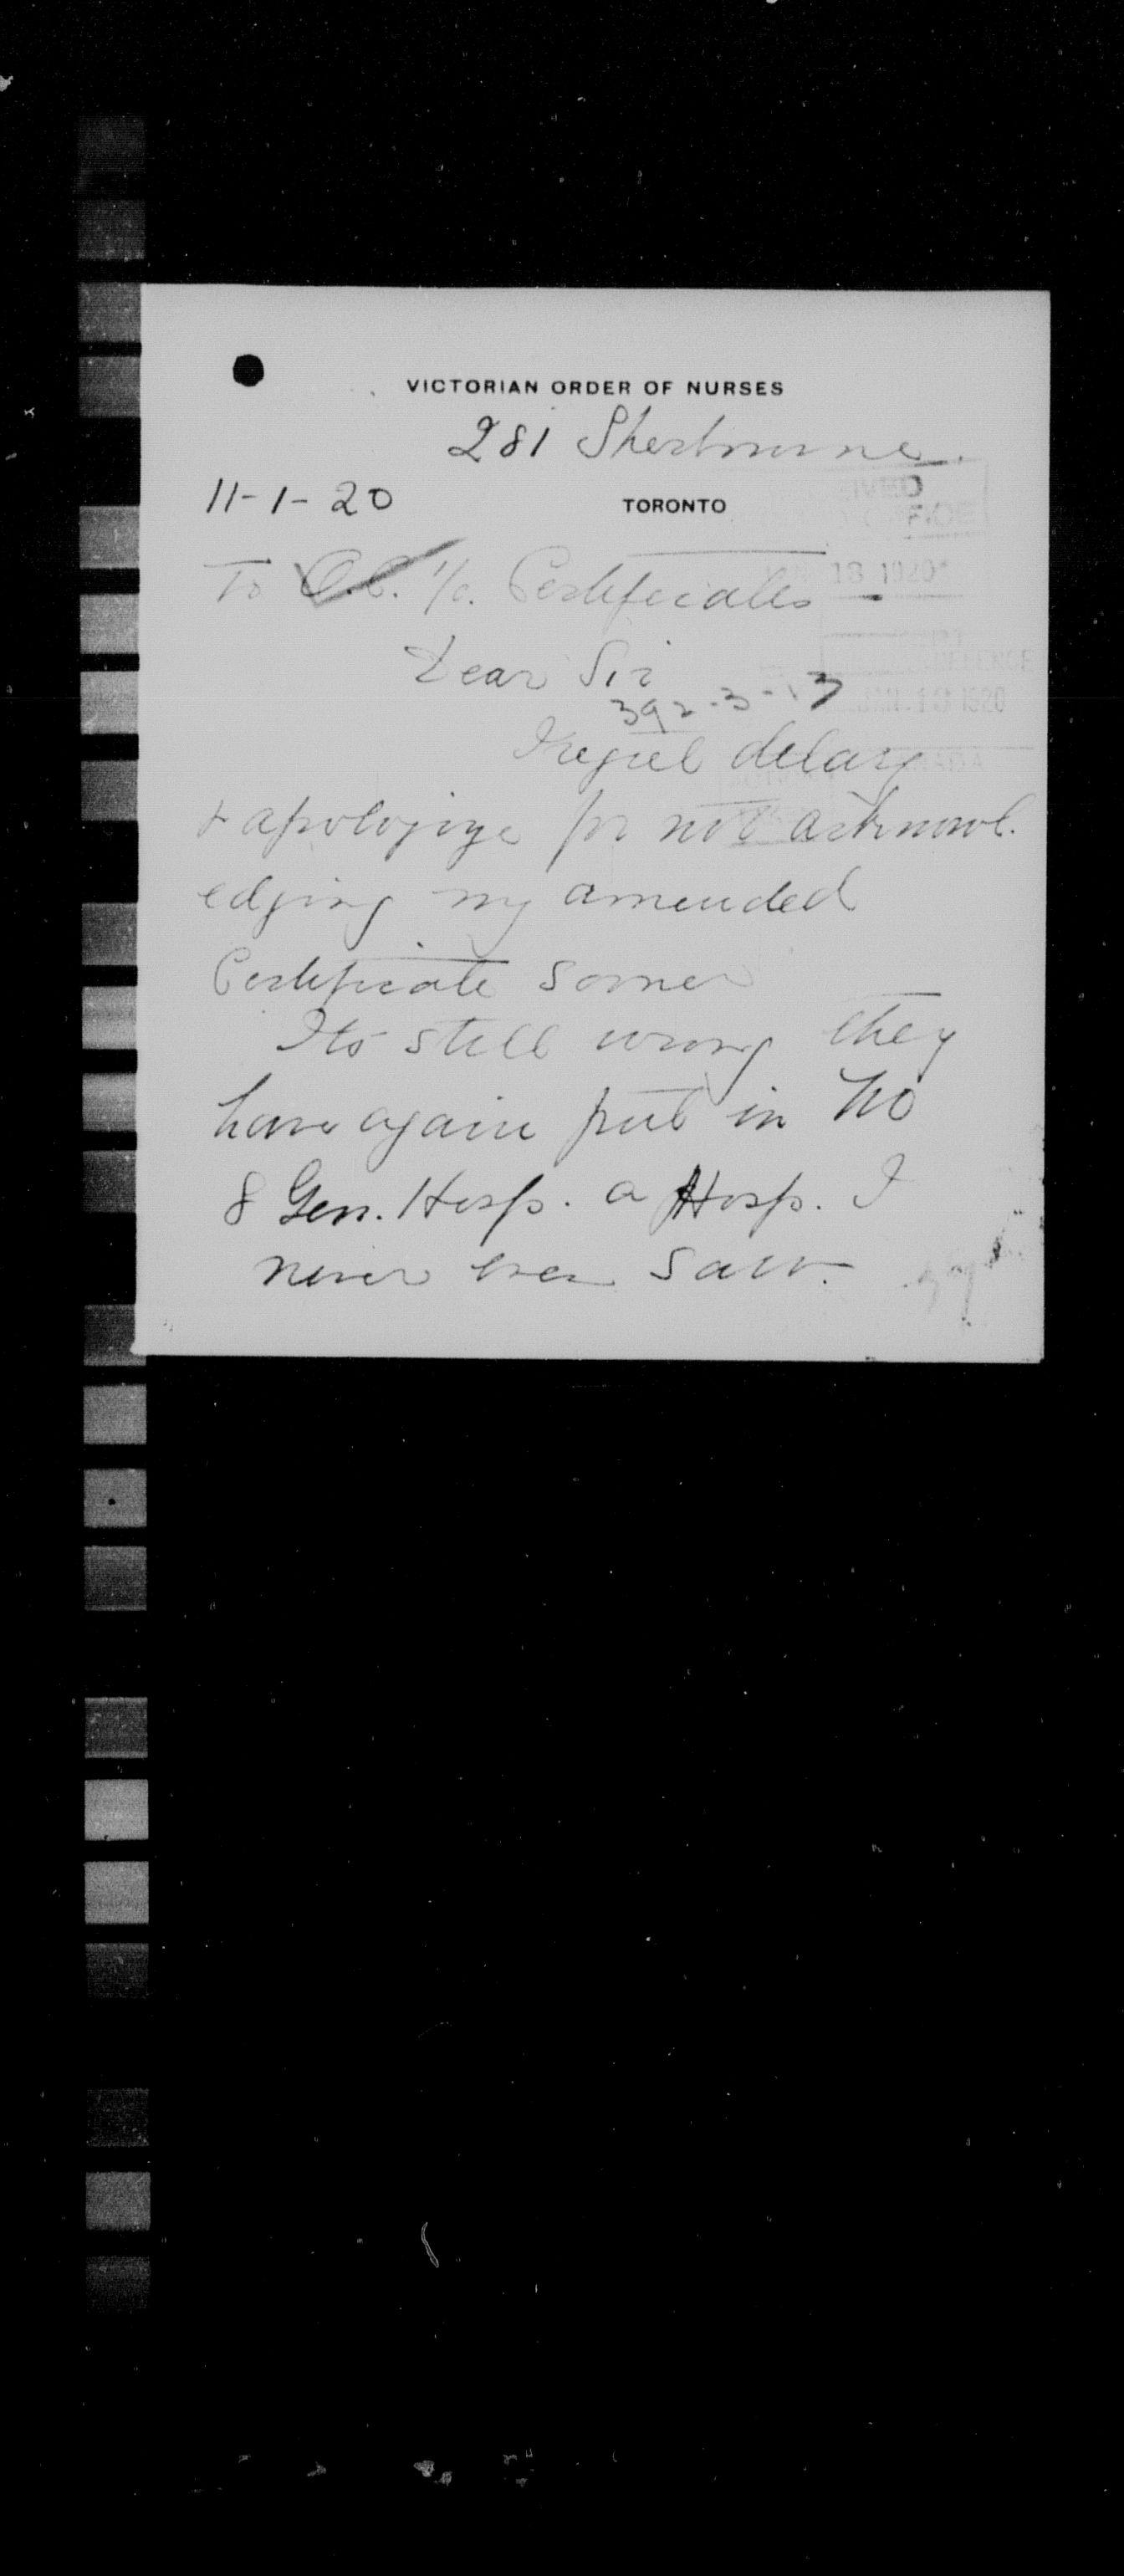 VICTORIAN ORDER OF NURSES
281 Sherbourne.
11-1-20 TORONTO
JAN 13 1920
To O.C. 1/c. Certificates
Dear Sir
392-3-13
JAN. 13 1920
I regret delay
& apologize for not acknowl.
edging my amended
Certificate sooner
Its still wrong they
have again put in No
8 Gen. Hosp. a Hosp. I
never even saw.